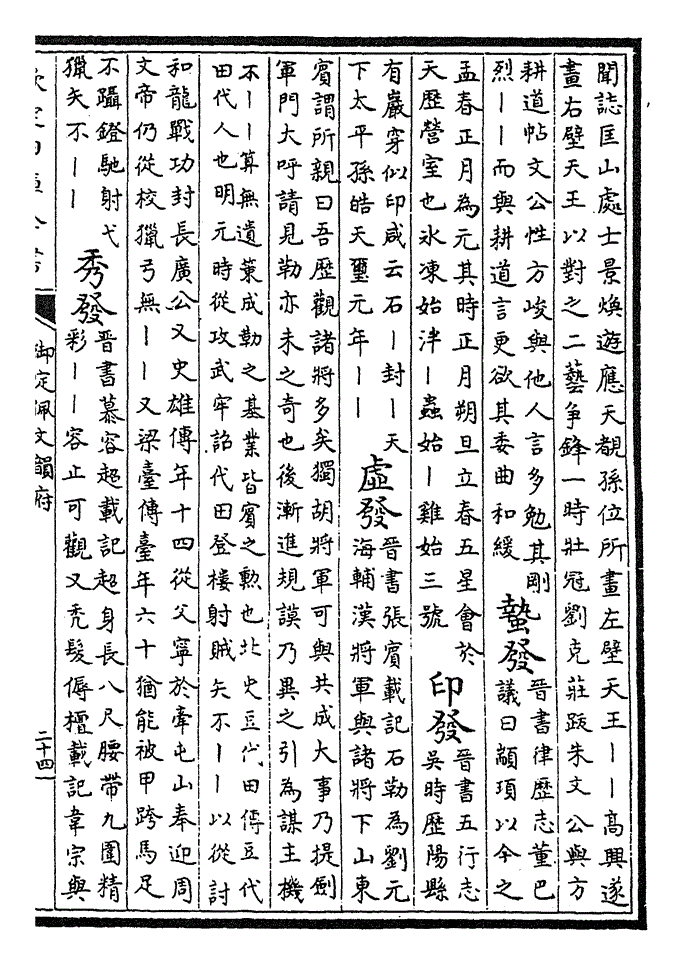 聞誌匡山處士景煥遊應天覩孫位所畫左壁天王丨丨高興遂
畫右壁天王以對之二藝争鋒一時壯冠劉克莊跋朱文公與方
耕道帖文公性方峻與他人言多勉其剛
烈丨丨而與耕道言更欲其委曲和緩
蟄發
晉書律歷志董巴
議曰顓頊以今之
孟春正月為元其時正月朔旦立春五星會於
天歷營室也氷凍始泮丨蟲始丨雞始三號
印發
晉書五行志
吳時歷陽縣
有巖穿似印咸云石丨封丨天
下太平孫皓天璽元年丨丨
虛發
晉書張賓載記石勒為劉元
海輔漢將軍與諸將下山東
賓謂所親曰吾歷觀諸將多矣獨胡將軍可與共成大事乃提劍
軍門大呼請見勒亦未之奇也後漸進規謨乃異之引為謀主機
不丨丨算無遺策成勒之基業皆賓之勲也北史豆代田傳豆代
田代人也明元時從攻武牢詔代田登樓射賊矢不丨丨以從討
和龍戰功封長廣公又史雄傳年十四從父寧於牽屯山奉迎周
文帝仍從校獵弓無丨丨又梁臺傳臺年六十猶能被甲跨馬足
不躡鐙馳射弋
獵矢不丨丨
秀發
晉書慕容超載記超身長八尺腰帶九圍精
彩丨丨容止可觀又禿髮傉檀載記韋宗與
御定佩文韻府
二十四